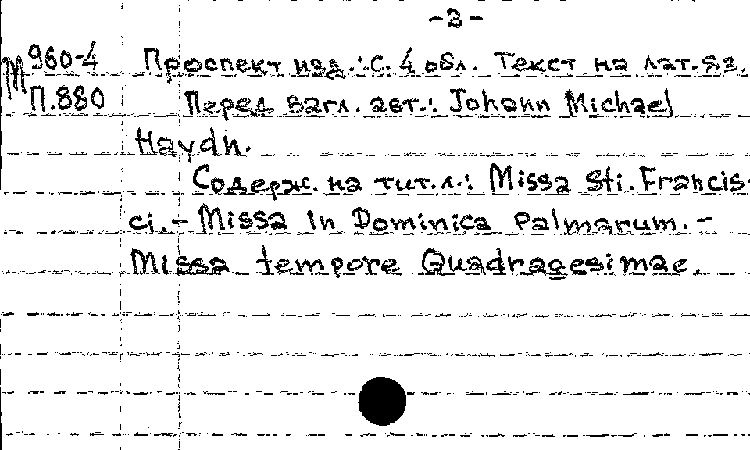 -2-
М 960-4 Проспект изд.: С. 4 обл. Текст на лат. яз.
П.880 Перед загл. авт.: Johann Michael
Haydn.
Содерж. на тит. л.: Missa Sti. Francis-
ci. - Missa In Dominica Palmarum. -
Missa tempore Quadragesimae.